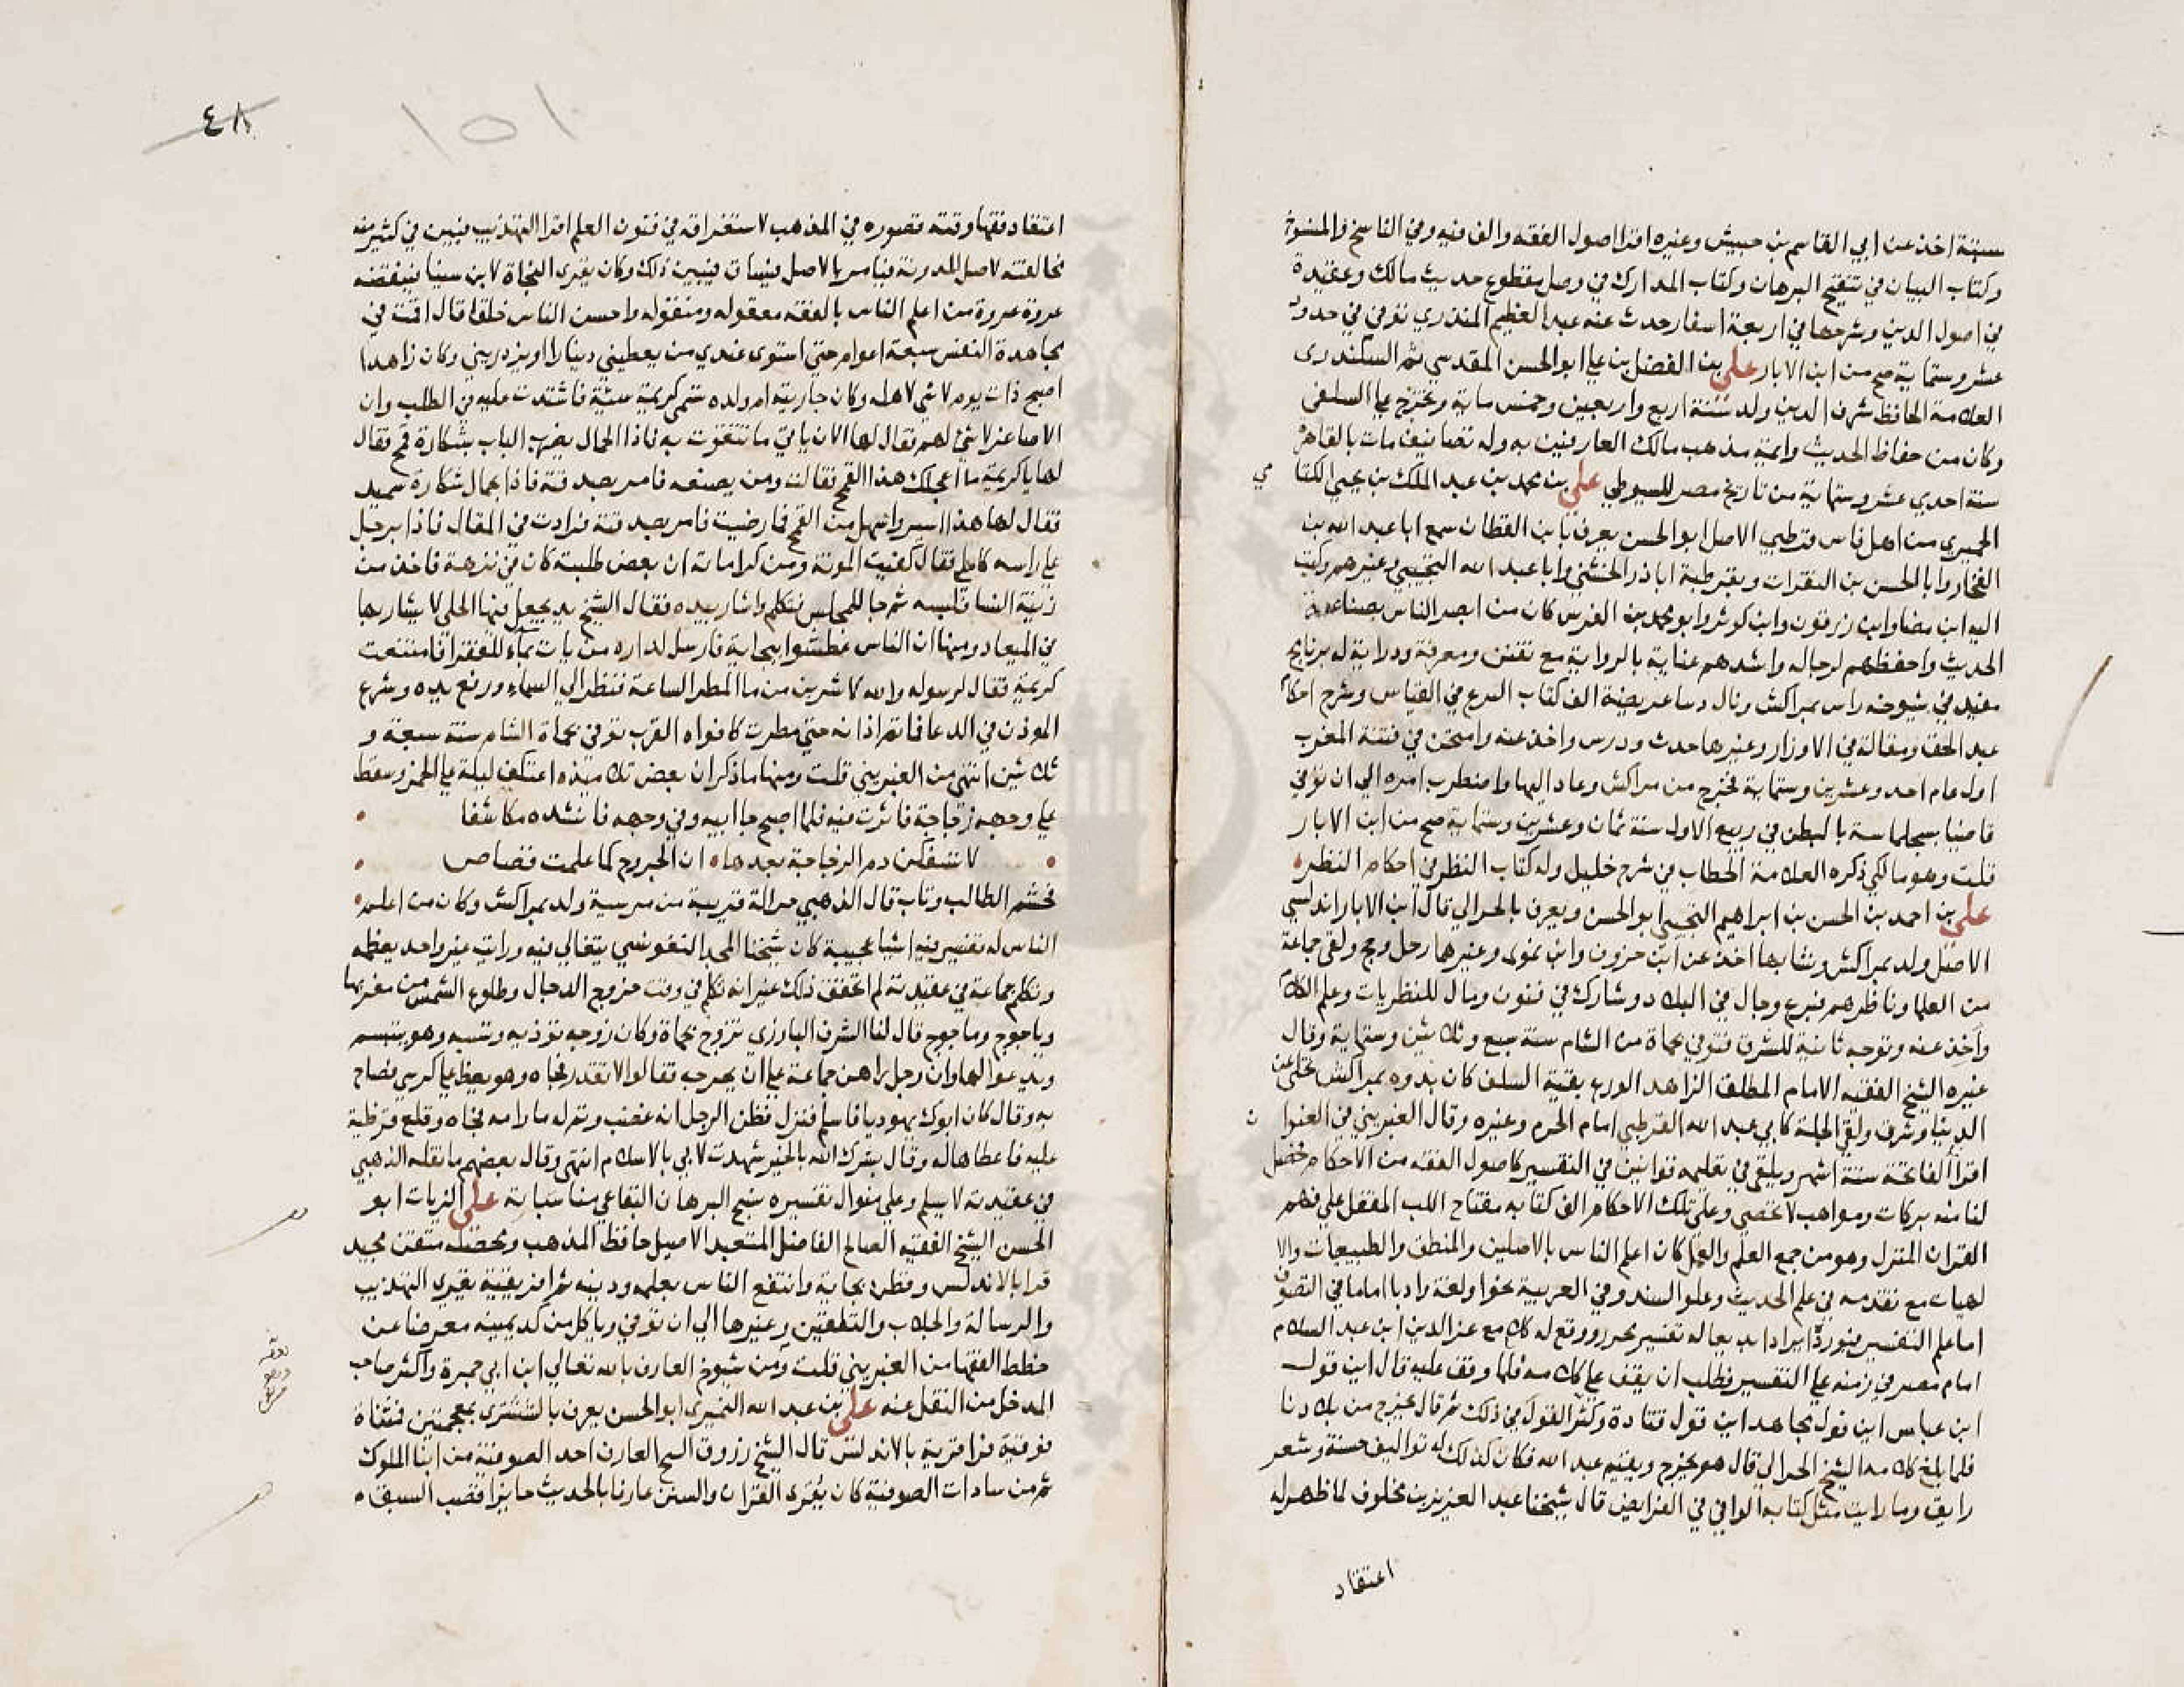 سبتة اخذ عن ابي القاسم بن حبيش وغيره اقرا اصول الفقه والف فيه وفي الناسخ والمنسوخ
وكتاب البيان في تنقيح البرهان وكتاب المدارك في وصل مقطوع حديث مالك وعقيدة
في اصول الدين وشرحها في اربعة اسفار حدث عنه عبد العظيم المنذري توفي في حدود
عشر وستماية صح من ابن الابار علي بن الفضل بن علي ابو الحسن المقدسي ثم السكندرى
العلامة الحافظ شرف الدين ولد سنة اربع واربعين وخمس ماية وتخرج علي السلفى
وكان من حفاظ الحديث وايمة مذهب مالك العارفين به وله تصانيف مات بالقاهرة
سنة احدي عشر وستماية من تاريخ مصر للسيوطي علي بن محمد بن عبد الملك بن يحيي الكتا مي
الحميري من اهل فاس قرطبي الاصل ابو الحسن يعرف بابن القطان سمع ابا عبد الله بن
الفخار وابا الحسن بن النقرات وبقرطبة اباذر الخشني وابا عبد الله التجيبي وغيرهم وكتب
اليه ابن مضا وابن زرقون وابن كوثر وابو محمد بن الفرس كان من ابصر الناس بصناعة
الحديث واحفظهم لرجاله واشدهم عناية بالرواية مع تفنن ومعرفة ودراية له برنامج
مفيد في شيوخه راس بمراكش ونال دنيا عريضة الف كتاب النزع في القياس وشرح احكام
عبد الحق ومقالة في الاوزار وغيرها حدث ودرس واخذ عنه وامتحن في فتنة المغرب
اول عام احد وعشرين وستماية فخرج من مراكش وعاد اليها واضطرب امره الي ان توفي
قاضيا بسجلماسة بالبطن في ربيع الاول سنة ثمان وعشرين وستماية صح من ابن الابار
قلت وهو مالكي ذكره العلامة الحطاب في شرح خليل وله كتاب النظر في احكام النظر
علي بن احمد بن الحسن بن ابراهيم التجيبي ابو الحسن ويعرف بالحرالي قال ابن الابار اندلسي
الاصل ولد بمراكش ونشا بها اخذ عن ابن خروف وابن نموى وغيرها رحل وحج ولقي جماعة
من العلما وناظرهم فبرع وجال في البلاد وشارك في فنون ومال للنظريات وعلم الكلام
واخذ عنه وتوجه ثانية للشرق فتوفي بحماة من الشام سنة سبع وثلاثين وستماية وقال
غيره الشيخ الفقيه الامام المطلق الزاهد الورع بقية السلف كان بدوه بمراكش تخلي عن
الدنيا وشرق ولقي الجلة كابي عبد الله القرطبي امام الحرم وغيره وقال الغبريني في العنوا ن
اقرا الفاتحة ستة اشهر ويلقي في تعليمه قوانين في التفسير كاصول الفقه من الاحكام فحصل
لنا منه بركات ومواهب لا تحصي وعلي تلك الاحكام الف كتابه مفتاح اللب المقفل علي فهم
القران المنزل وهو من جمع العلم والعمل كان اعلم الناس بالاصلين والمنطق والطبيعيات والا
لهيات مع تقدمه في علم الحديث وعلو السند وفي العربية نحوا ولغة وادبا اماما في التصوف
اما علم التفسير فيورده ايراد ابديعا له تفسير محرر ووقع له كلام مع عز الدين ابن عبد السلام
امام مصر في زمنه علي التفسير فطلب ان يقف علي كلامه فلما وقف عليه قال اين قول
ابن عباس اين قول مجاهد اين قول قتادة وكثر القول في ذلك ثم قال يخرج من بلادنا
فلما بلغ كلامه الشيخ الحرالي قال هو يخرج ويقيم عبد الله فكان كذلك له تواليف حسنة وشعر
رايق وما رايت مثل كتابه الوافي في الفرايض قال شيخنا عبد العزيز بن مخلوف لما ظهر له
اعتقاد
٤٨
١٥١
اعتقاد فقها وقته قصوره في المذهب لاستغراقه في فنون العلم اقرا التهذيب فيبين في كثير منه
مخالفته لاصل المدونة فيامر بالاصل فيساق فيبين ذلك وكان يقرى النجاة لابن سينا فينقضه
عروة عروة من اعلم الناس بالفقه معقوله ومنقوله واحسن الناس خلقا قال اقمت في
مجاهدة النفس سبعة اعوام حتي استوى عندي من يعطيني دينارا او يزدريني وكان زاهدا
اصبح ذات يوم لا شى لاهله وكان جارية ام ولده تسمى كريمة سيئة فاشتدت عليه في الطلب وان
الاصاغر لا شئ لهم فقال لها الان ياتي ما نتقوت به فاذا الحمال يضرب الباب بشكارة قمح فقال
لها ياكريمة ما اعجلك هذا القمح فقالت ومن يصنعه فامر بصدقته فاذا حمال شكارة سميد
فقال لها هذا ايسر واسهل من القمح فما رضيت فامر بصدقته فزادت في المقال فاذا برجل
علي راسه طعام فقال كفيت المونة ومن كراماته ان بعض طلبته كان في نزهة فاخذ من
زينة النسا فلبسه ثم جا للمجلس فتكلم واشار بيده فقال الشيخ يد يجعل فيها الحلي لا يشار بها
في الميعاد ومنها ان الناس عطشوا ببجاية فارسل لداره من يات بماء للفقرا فامتنعت
كريمة فقال لرسوله والله لاشربن من ما المطر الساعة فنظر الي السماء ورفع يده وشرع
الموذن في الدعا فما تم اذانه حتي مطرت كافواه القرب توفي بحماة الشام سنة سبعة و
ثلاثين انتهي من الغبريني قلت ومنها ما ذكر ان بعض تلاميذه اعتكف ليلة علي الخمر وسقط
علي وجهه زجاجة فاثرت فيه فلما اصبح جا اليه وفي وجهه فانشده مكاشفا
لا تسفكن دم الزجاجة بعدها ان الجروح كما علمت قصاص
فخشم الطالب وتاب قال الذهبي حرالة قريبة من مرسية ولد بمراكش وكان من اعلم
الناس له تفسير فيه اشيا عجيبة كان شيخنا المجد التفونسي يتغالي فيه ورايت غير واحد يعظمه
وتكلم جماعة في عقيدته لم اتحقق ذلك غير انه تكلم في وقت خروج الدجال وطلوع الشمس من مغربها
وياجوج وماجوج قال لنا الشرف البارزي تزوج بحماة وكان زوجه توذيه وتسبه وهو يتبسم
ويدعوا لها وان رجلا راهن جماعة علي ان يحرجه فقالوا لا تقدر فجاه وهو يعظ علي كرسي فصاح
به وقال كان ابوك يهوديا فاسلم فنزل فظن الرجل انه غضب وتم له ما رامه فجاه وقلع فرظية
عليه فاعطاها له وقال بشرك الله بالخير شهدت لابي بالاسلام انتهي وقال بعضهم ما نقله الذهبي
في عقيدته لا يسلم وعلي منوال تفسيره نسج البرهان البقاعي مناسباته علي الزيات ابو
الحسن الشيخ الفقيه الصالح الفاضل المتعبد الاصيل حافظ المذهب ومحصله متفنن مجيد
قرا بالاندلس وقطن بجاية وانتفع الناس بعلمه ودينه ثم افريقية يقرى التهذيب
والرسالة والجلاب والتلقين وغيرها الي ان توفي وياكل من كد يمينه معرضا عن
خطط الفقها من الغبريني قلت ومن شيوخ العارف بالله تعالي ابن ابي جمرة واكثر صاحب
المدخل من النقل عنه علي بن عبد الله النميري ابو الحسن يعرف بالششترى بمعجمتين فمثناة
فوقية فرا قرية بالاندلس قال الشيخ زروق الشيخ العارف احد الصوفية من ابنا الملوك
ثم من سادات الصوفية كان يقرى القران والسنن عارفا بالحديث حايزا قصب السبق